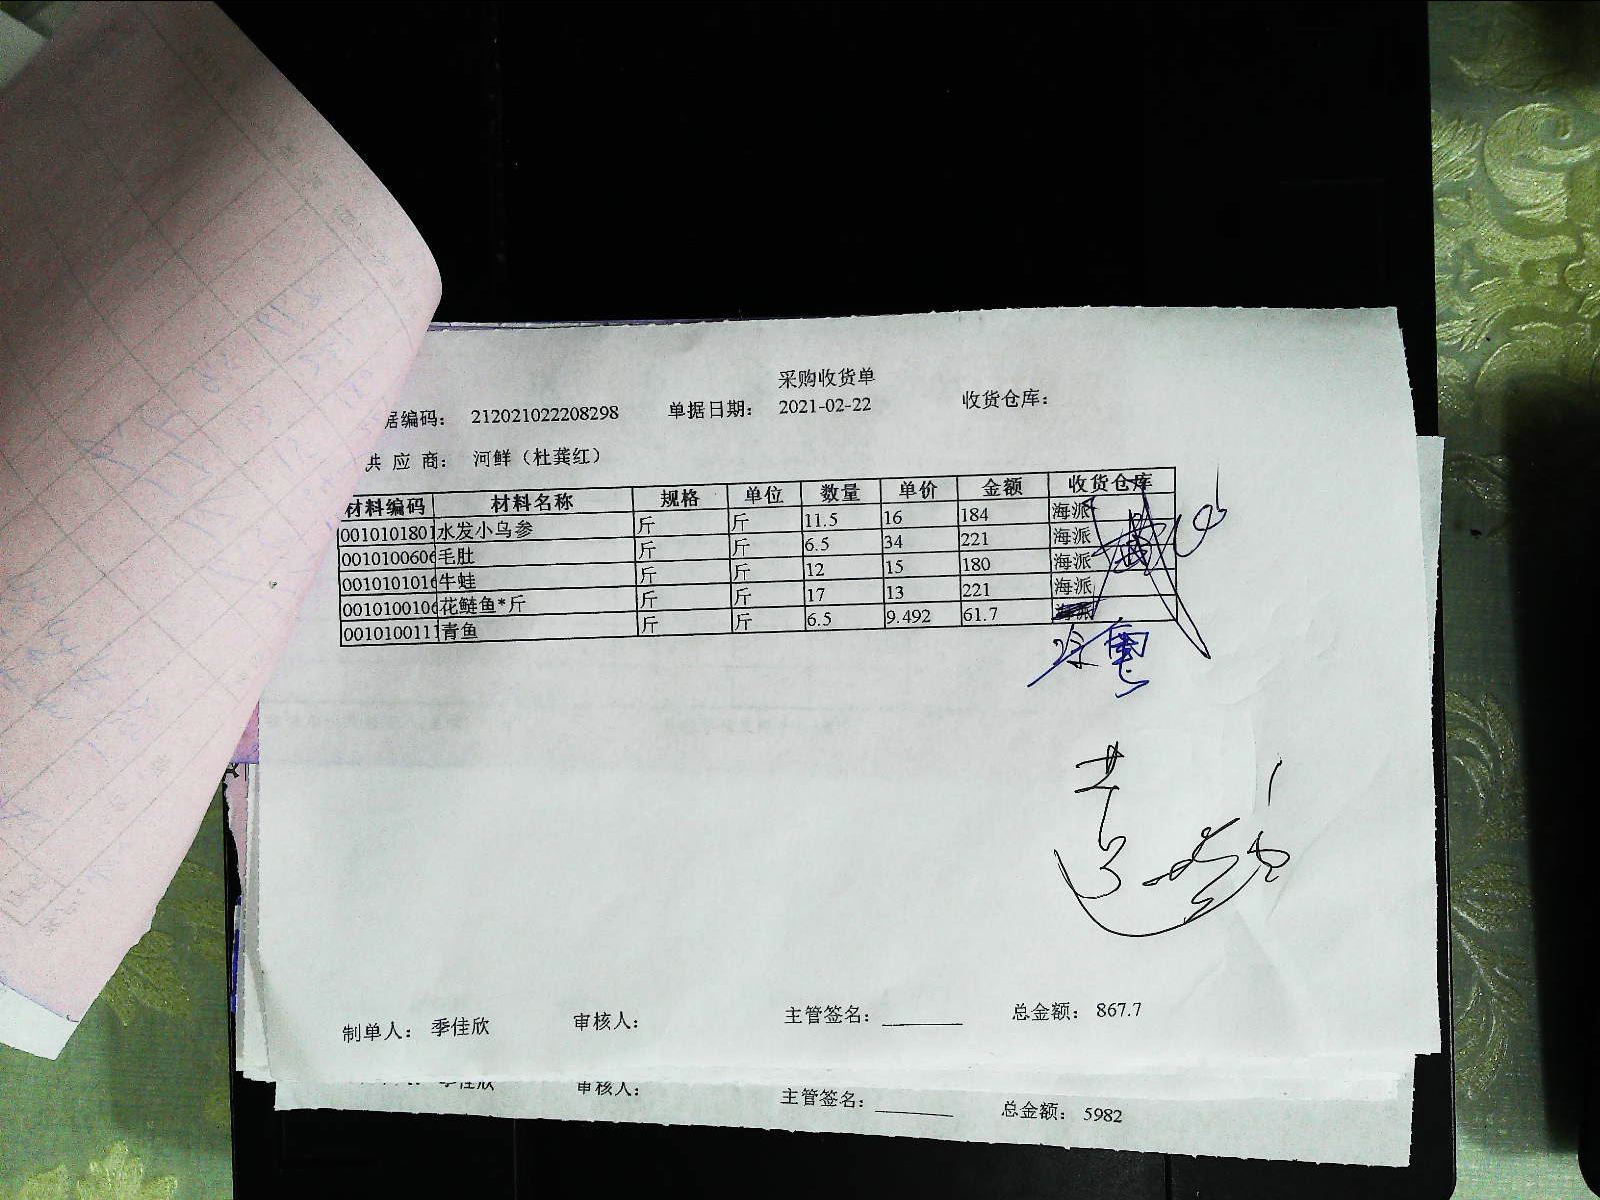 采购收货单
据编码： 212021022208298 单据日期： 2021-02-22 收货仓库：
供 应 商： 河鲜（杜龚红）
材料编码 材料名称 规格 单位 数量 单价 金额 收货仓库
0010101801 水发小乌参 斤 斤 11.5 16 184 海派
001010060 毛肚 斤 斤 6.5 34 221 海派
001010101 牛蛙 斤 斤 12 15 180 海派
001010010 花鲢鱼*斤 斤 斤 17 13 221 海派
001010011 青鱼 斤 斤 6.5 9.492 61.7 海派
制单人： 季佳欣 审核人： 主管签名：________ 总金额： 867.7
季佳欣 审核人： 主管签名：________ 总金额： 5982